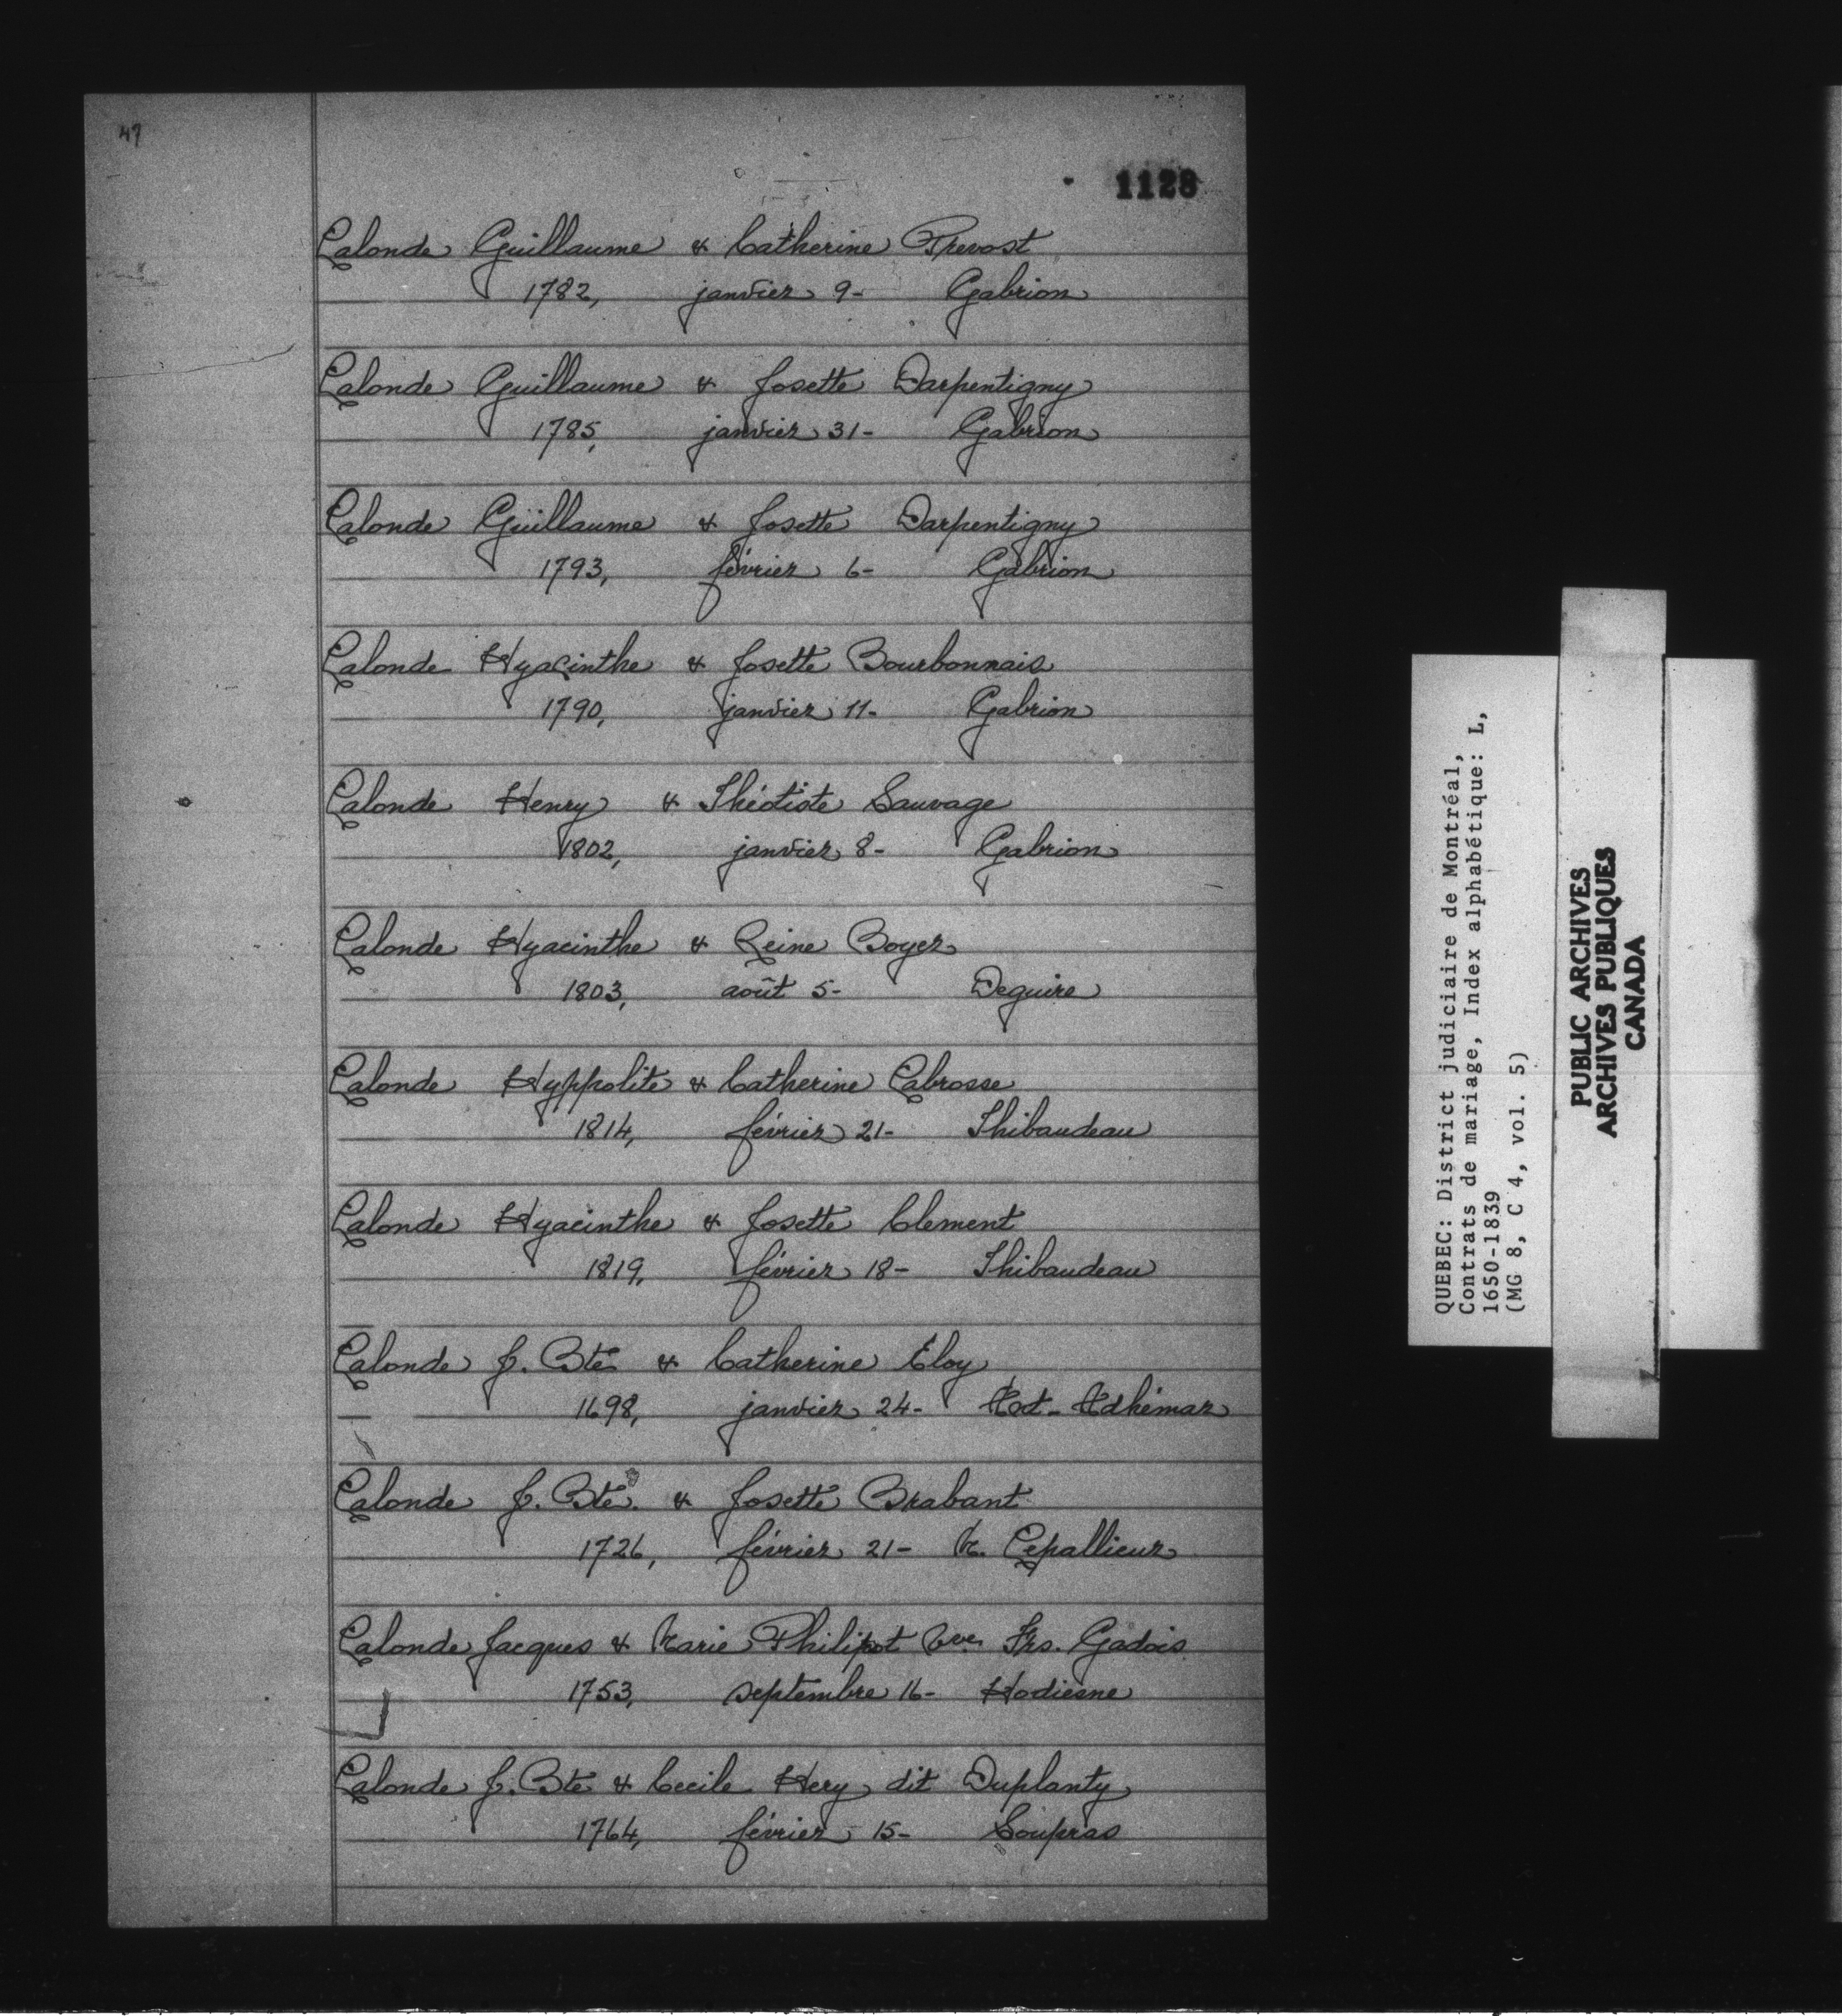 47
1128
Lalonde Guillaume & Catherine Prevost
1782, janvier 9- Gabrion
Lalonde Guillaume & Josette Darpentigny
1785, janvier 31- Gabrion
Lalonde Guillaume & Josette Darpentigny
1793, février 6- Gabrion
Lalonde Hyacinthe & Josette Bourbonnais
1790, janvier 11- Gabrion
Lalonde Henry & Théotiste Sauvage
1802, janvier 8- Gabrion
Lalonde Hyacinthe & Reine Boyer
1803, août 5- Deguire
Lalonde Hyppolite & Catherine Labrosse
1814, février 21- Thibaudeau
Lalonde Hyacinthe & Josette Clement
1819, février 18- Thibaudeau
Lalonde J. Bte & Catherine Eloy
1698, janvier 24- Ant- Adhémar
Lalonde J. Bte. & Josette Brabant
1726, février 21- M. Lepallieur
Lalonde Jacques & Marie Philipot Vve Frs. Gadois
1753, septembre 16- Hodiesne
Lalonde J. Bte & Cecile Hery dit Duplanty
1764, février 15- Soupras
QUEBEC: District judiciaire de Montréal,
Contrats de mariage, Index alphabétique: L,
1650-1839
(MG 8, C 4, vol. 5)
PUBLIC ARCHIVES
ARCHIVES PUBLIQUES
CANADA